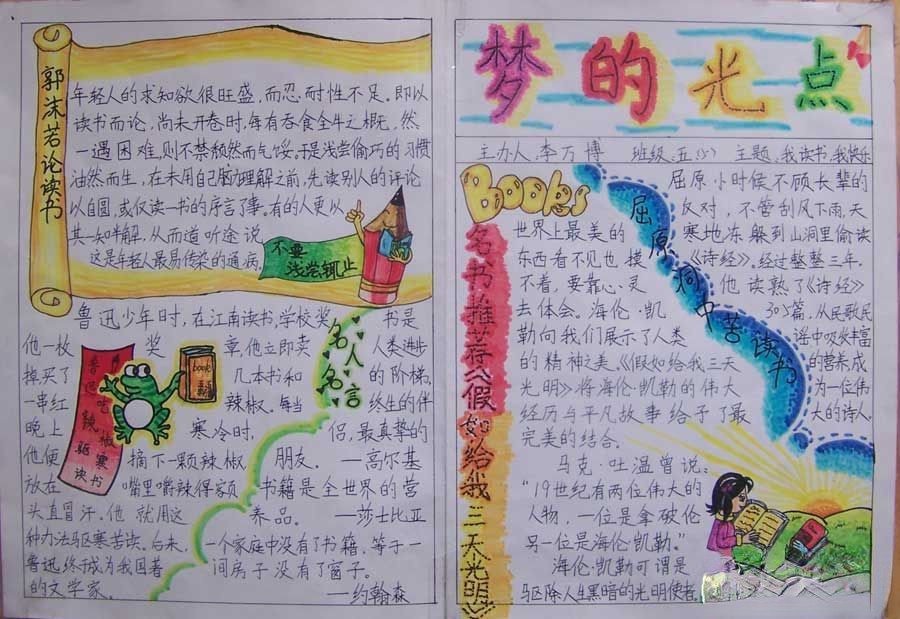 郭沫若论读书
年轻人的求知欲很旺盛,而忍耐性不足。即以
读书而论,尚未开卷时,每有吞食全牛之概,然
一遇困难,则不禁颓然而气馁,于是浅尝偷巧的习惯
油然而生,在未用自己脑力理解之前,先读别人的评论
以自圆,或仅读一书的序言了事。有的人更以
其一知半解,从而道听途说
这是年轻人最易传染的通病,
不要
浅尝辄止
鲁迅少年时,在江南读书,学校奖
他一枚 奖 章,他立即卖
掉买了 几本书和
一串红 辣椒。每当
晚上 寒冷时,
他便 摘下一颗辣椒,
放在 嘴里嚼辣得客页
头直冒汗。他 就用这
种办法驱寒苦读。后来,
鲁迅终于成为我国著
的文学家。
鲁迅吃辣椒驱寒读书
book
名人名言
书是
人类进步
的阶梯,
终生的伴
侣,最真挚的
朋友。 —高尔基
书籍是全世界的营
养品。 —莎士比亚
一个家庭中没有了书籍,等于一
间房子没有了窗子。
—约翰森
梦的光点
主办人:李万博 班级:五(5) 主题:我读书,我快乐
Books
名书推荐《假如给我三天光明》
世界上最美的
东西看不见也摸
不着,要靠心灵
去体会。海伦·凯
勒向我们展示了人类
的精神之美。《假如给我三天
光明》将海伦·凯勒的伟大
经历与平凡故事给予了最
完美的结合。
马克·吐温曾说:
“19世纪有两位伟大的
人物,一位是拿破伦
另一位是海伦·凯勒。”
海伦·凯勒可谓是
驱除人生黑暗的光明使者。
屈原洞中苦读书
屈原小时候不顾长辈的
反对,不管刮风下雨,天
寒地冻,躲到山洞里偷读
《诗经》。经过整整三年,
他读熟了《诗经》
305篇,从民歌民
谣中吸收丰富
的营养,成
为一位伟
大的诗人。